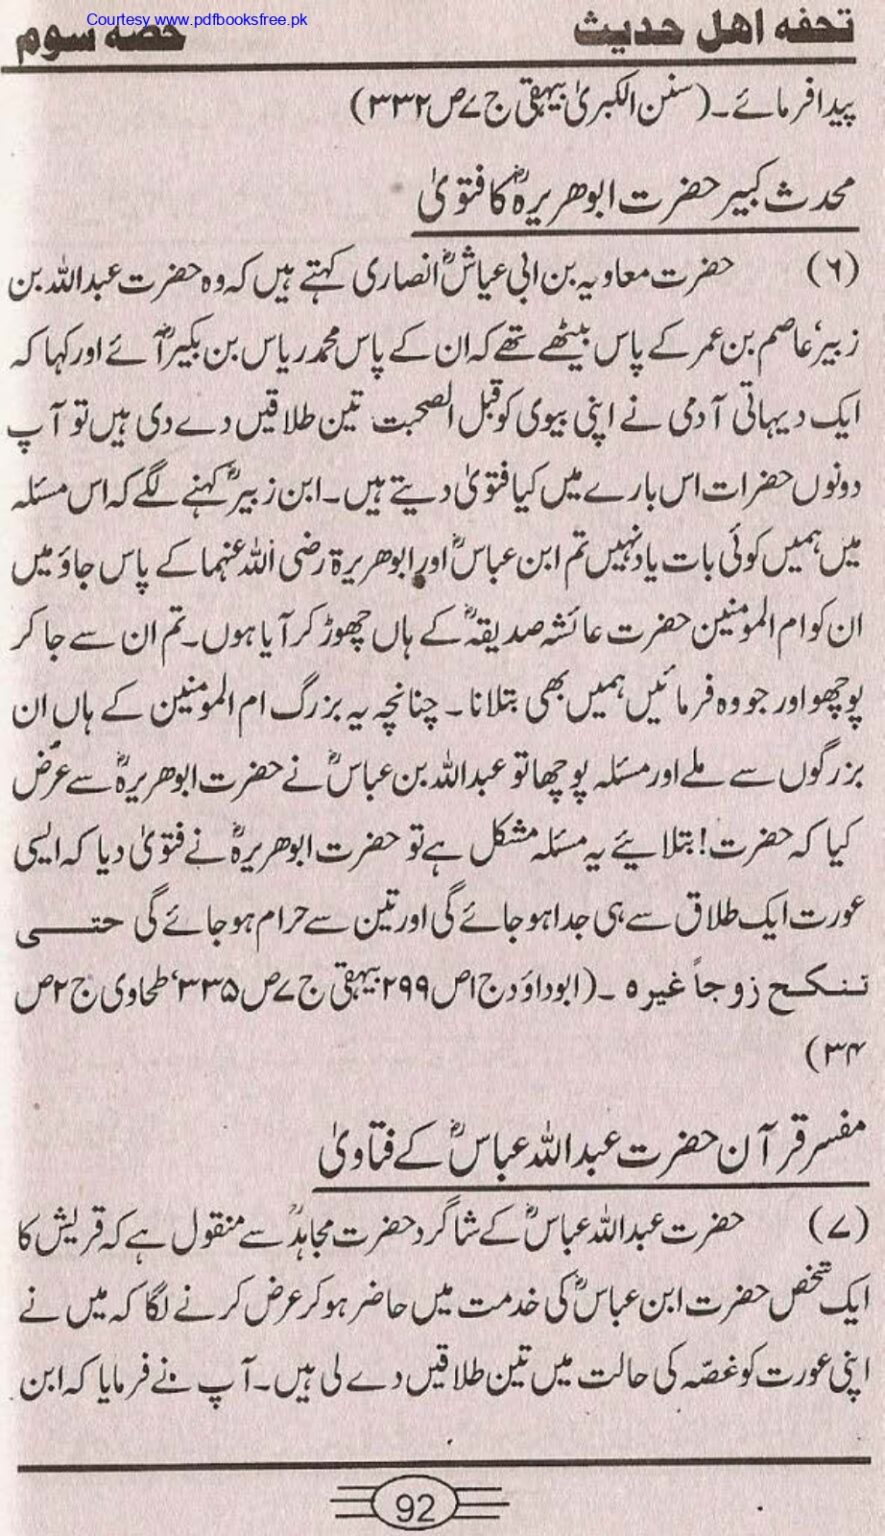 Courtesy www.pdfbooksfree.pk
تحفه اهل حديث حصه سوم
پیدا فرمائے۔ (سنن الکبریٰ بیہقی ج ۷ ص ۳۳۲)
محدث کبیر حضرت ابوھریرہؓ کا فتویٰ
(۶) حضرت معاویہ بن ابی عیاشؓ انصاری کہتے ہیں کہ وہ حضرت عبداللہ بن
زبیر، عاصم بن عمر کے پاس بیٹھے تھے کہ ان کے پاس محمد ریاس بن بکیرؓ آئے اور کہا کہ
ایک دیہاتی آدمی نے اپنی بیوی کو قبل الصحبت تین طلاقیں دے دی ہیں تو آپ
دونوں حضرات اس بارے میں کیا فتویٰ دیتے ہیں۔ ابن زبیرؓ کہنے لگے کہ اس مسئلہ
میں ہمیں کوئی بات یاد نہیں تم ابن عباسؓ اور ابوھریرۃ رضی اللہ عنہما کے پاس جاؤ میں
ان کو ام المومنین حضرت عائشہ صدیقہؓ کے ہاں چھوڑ کر آیا ہوں۔ تم ان سے جا کر
پوچھو اور جو وہ فرمائیں ہمیں بھی بتلانا۔ چنانچہ یہ بزرگ ام المومنین کے ہاں ان
بزرگوں سے ملے اور مسئلہ پوچھا تو عبداللہ بن عباسؓ نے حضرت ابوھریرہؓ سے عرض
کیا کہ حضرت! بتلائیے یہ مسئلہ مشکل ہے تو حضرت ابوھریرہؓ نے فتویٰ دیا کہ ایسی
عورت ایک طلاق سے ہی جدا ہو جائے گی اور تین سے حرام ہو جائے گی حتی
تنکح زوجاً غیرہ۔ (ابوداؤد ج ۱ ص ۲۹۹ بیہقی ج ۷ ص ۳۳۵، طحاوی ج ۲ ص
۳۴)
مفسر قرآن حضرت عبداللہ عباسؓ کے فتاویٰ
(۷) حضرت عبداللہ عباسؓ کے شاگرد حضرت مجاہدؒ سے منقول ہے کہ قریش کا
ایک شخص حضرت ابن عباسؓ کی خدمت میں حاضر ہو کر عرض کرنے لگا کہ میں نے
اپنی عورت کو غصّہ کی حالت میں تین طلاقیں دے لی ہیں۔ آپ نے فرمایا کہ ابن
92